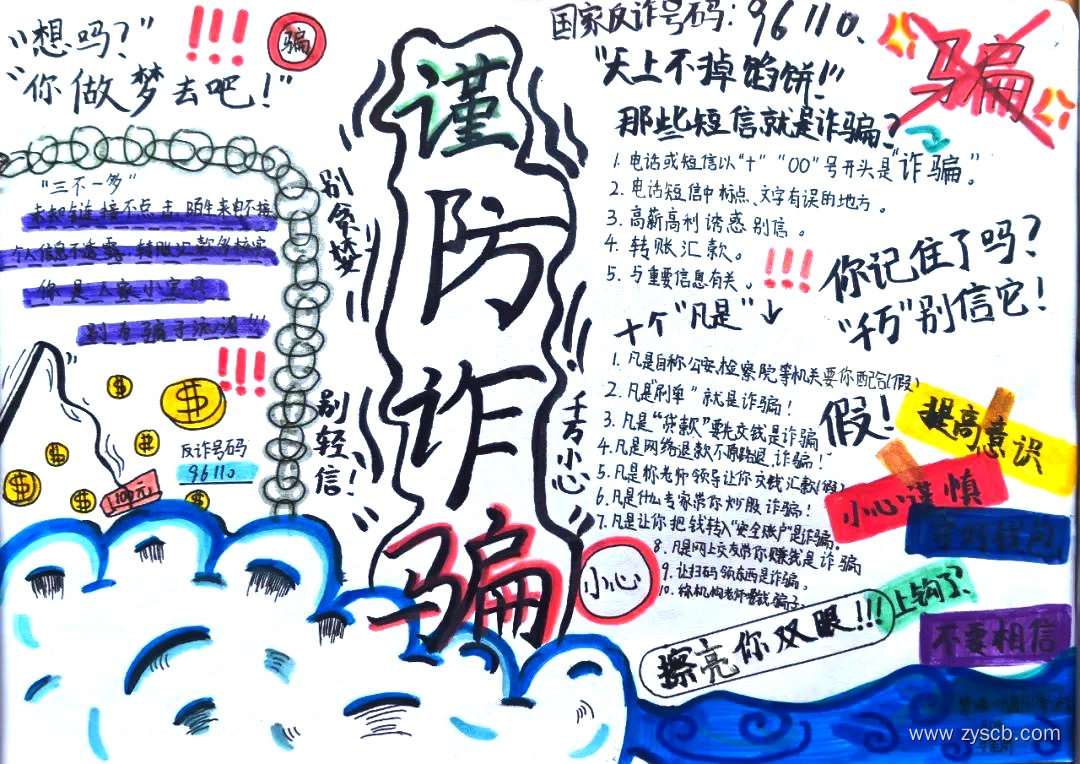 “想吗？”
“你做梦去吧！”
!!!
骗
谨防诈骗
别贪梦
别轻信！
千万小心
小心
“三不一多”
未知链接不点击，陌生来电不接
个人信息不透露，转账汇款多核实
你是人家小宝贝
别为骗子流泪!!!
!!!
反诈号码
96110
100元
国家反诈号码：96110、
“天上不掉馅饼！”
骗
那些短信就是诈骗？
1. 电话或短信以“十”“00”号开头是“诈骗”。
2. 电话短信中标点、文字有误的地方。
3. 高薪高利诱惑别信。
4. 转账汇款。
5. 与重要信息有关。
!!!
你记住了吗？
“千万”别信它！
十个“凡是”↓
1. 凡是自称公安，检察院等机关要你配合(假)
2. 凡是“刷单”就是诈骗！
3. 凡是“贷款”要先交钱是诈骗
4. 凡是网络退款不原路退，诈骗！
5. 凡是称老师领导让你交钱汇款(假)
6. 凡是什么专家带你炒股诈骗！
7. 凡是让你把钱转入“安全账户”是诈骗。
8. 凡是网上交友带你赚钱是诈骗
9. 让扫码领东西是诈骗。
10. 称机构老师要钱骗子。
假！
提高意识
小心谨慎
守好钱包
上钩了？
不要相信
擦亮你双眼!!!
www.zyscb.com